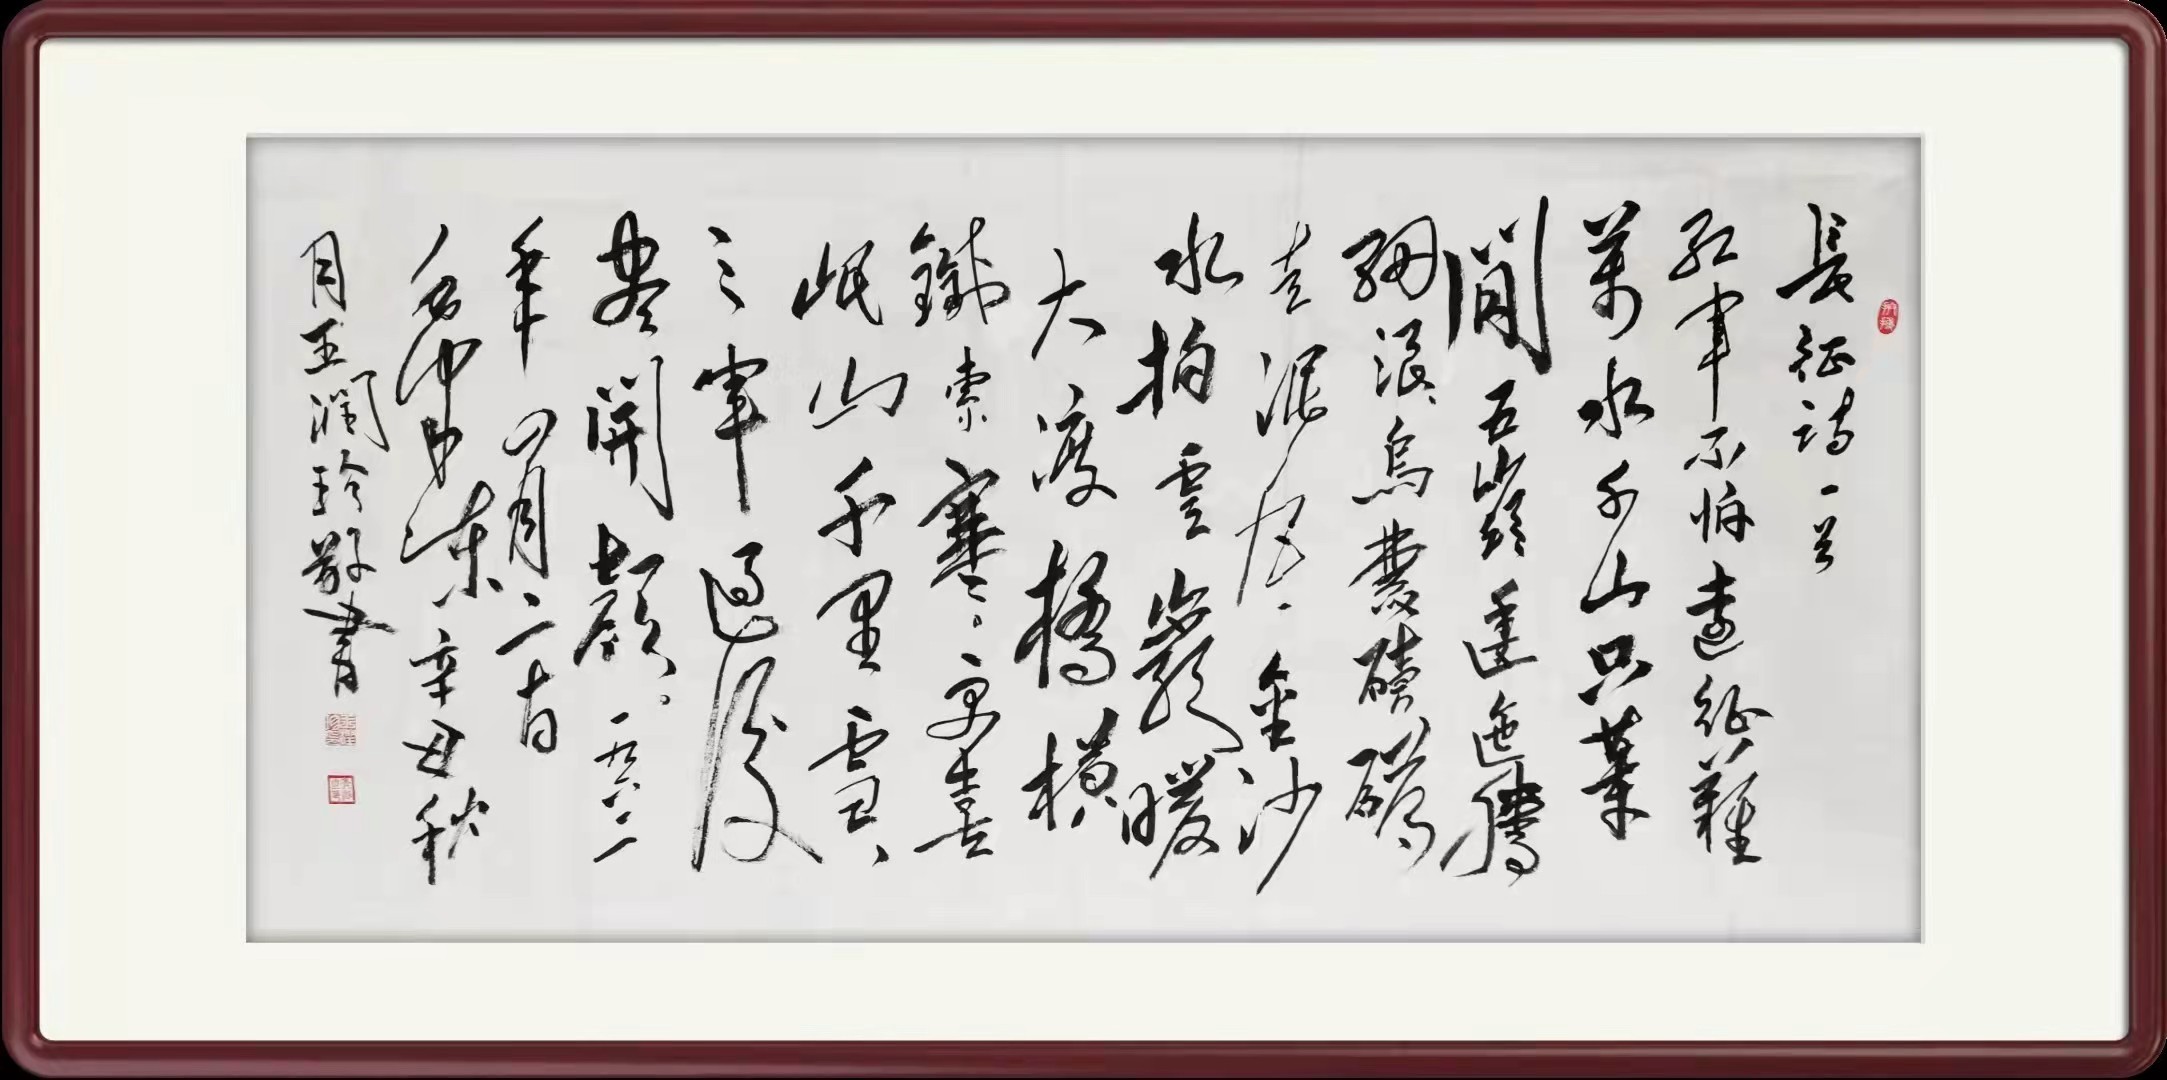 長征詩一首
红軍不怕遠征難
萬水千山只等
閒五嶺逶迤騰
细浪烏蒙磅礴
走泥丸金沙
水拍雲巖暖
大渡橋橫
鐵索寒更喜
岷山千里雪
三軍過後
盡開顏。一九六二
年四月二十日
辛丑秋
月王潤珍敬書